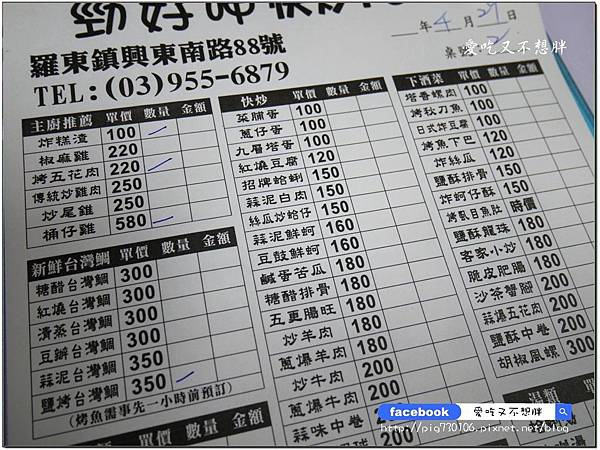 年 4 月 29 日
愛吃又不想胖
羅東鎮興東南路88號
TEL:(03)955-6879
主廚推薦 單價 數量 金額
炸糕渣 100
椒麻雞 220
烤五花肉 220
傳統炒雞肉 250
炒尾錐 250
桶仔雞 580
新鮮台灣鯛 單價 數量 金額
糖醋台灣鯛 300
紅燒台灣鯛 300
清蒸台灣鯛 300
豆瓣台灣鯛 300
蒜泥台灣鯛 350
鹽烤台灣鯛 350
(烤魚需事先一小時前預訂)
單價 數量 金額
快炒 單價 數量 金額
菜脯蛋 100
蔥仔蛋 100
九層塔蛋 100
紅燒豆腐 120
招牌蛤蜊 150
蒜泥白肉 150
絲瓜炒蛤仔 150
蒜泥鮮蚵 160
豆鼓鮮蚵 160
鹹蛋苦瓜 180
糖醋排骨 180
五更腸旺 180
炒羊肉 180
蔥爆羊肉 180
炒牛肉 200
蔥爆牛肉 200
蒜味中卷 200
下酒菜 單價 數量 金額
塔香螺肉 100
烤秋刀魚 100
日式炸豆腐 100
烤魚下巴 120
炸絲瓜 120
鹽酥排骨 150
炸蚵仔酥 150
烤虱目魚肚 時價
鹽酥龍珠 180
客家小炒 180
脆皮肥腸 180
沙茶蟹腳 200
蒜爆五花肉 200
鹽酥中卷 200
胡椒鳳螺 300
湯類
facebook 愛吃又不想胖
http://pig730106.pixnet.net/blog